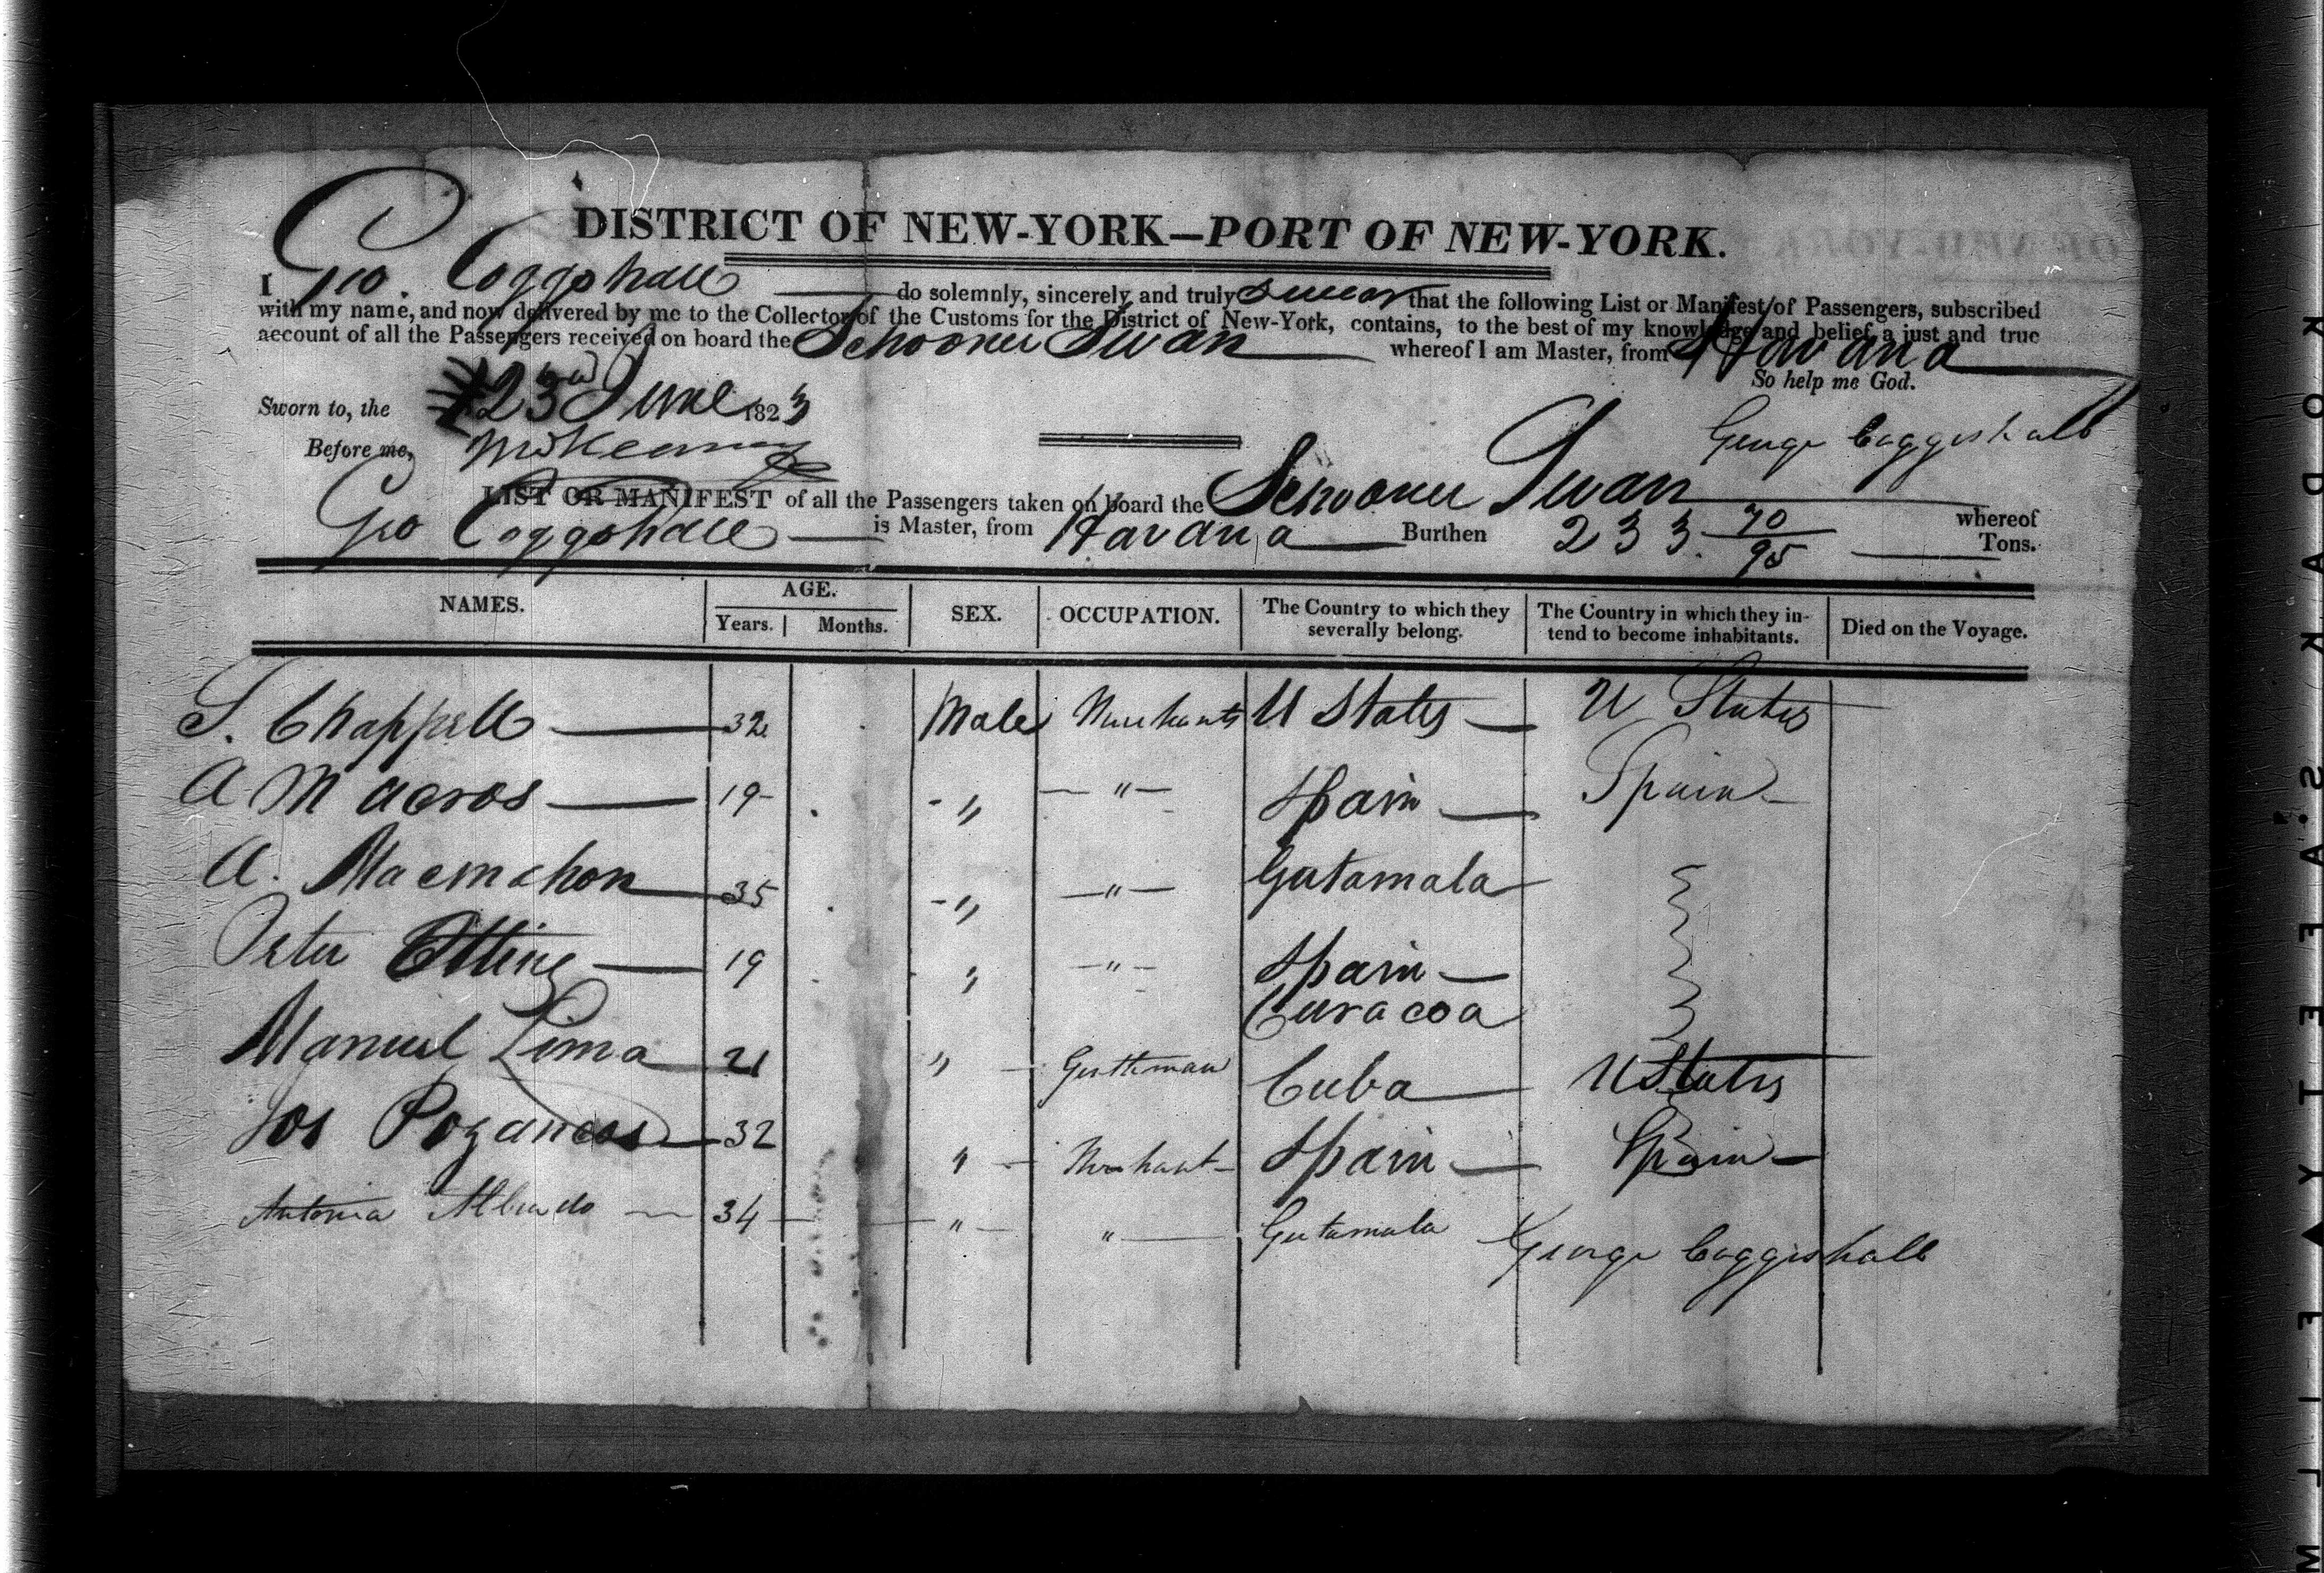 DISTRICT OF NEW-YORK—PORT OF NEW-YORK.
I Geo. Coggshall do solemnly, sincerely and truly swear that the following List or Manifest of Passengers, subscribed
with my name, and now delivered by me to the Collector of the Customs for the District of New-York, contains, to the best of my knowledge and belief, a just and true
account of all the Passengers received on board the Schooner Swan whereof I am Master, from Havana
So help me God.
Sworn to, the 23rd June 1823
George Coggeshall
Before me,
LIST OR MANIFEST of all the Passengers taken on board the Schooner Swan whereof
Geo Coggshall is Master, from Havana Burthen 233. 70/95 Tons.
NAMES. AGE. SEX. OCCUPATION. The Country to which they severally belong. The Country in which they intend to become inhabitants. Died on the Voyage.
Years. Months.
S. Chappell 32 Male Merchants U States U States
A Macros 19 " " Spain Spain
A. Macmahon 35 " " Gutamala
Peter 19 " " Spain
Curacoa
Manuel Lima 21 " Gentleman Cuba U States
Jos 32 " Merchant Spain Spain
Antonia 34 " " Gutamala
George Coggeshall